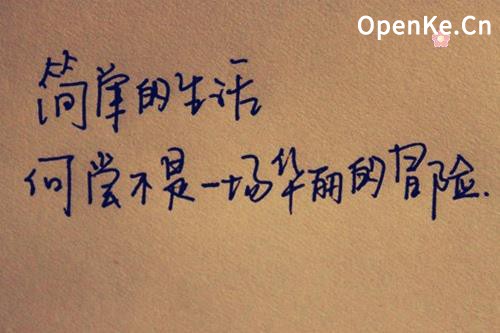 OpenKe.Cn
简单的生活
何尝不是一场华丽的冒险.